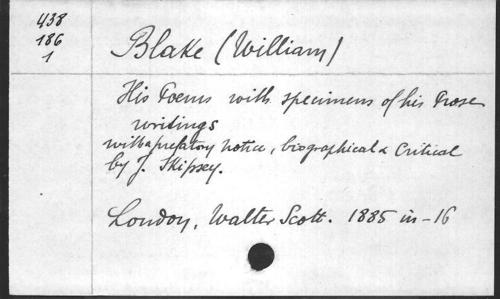 438
186
1
Blake (William)
His Poems with specimens of his Prose
writings
with a prefatory notice, biographical & Critical
by J. Skipsey.
London, Walter Scott. 1885 in-16